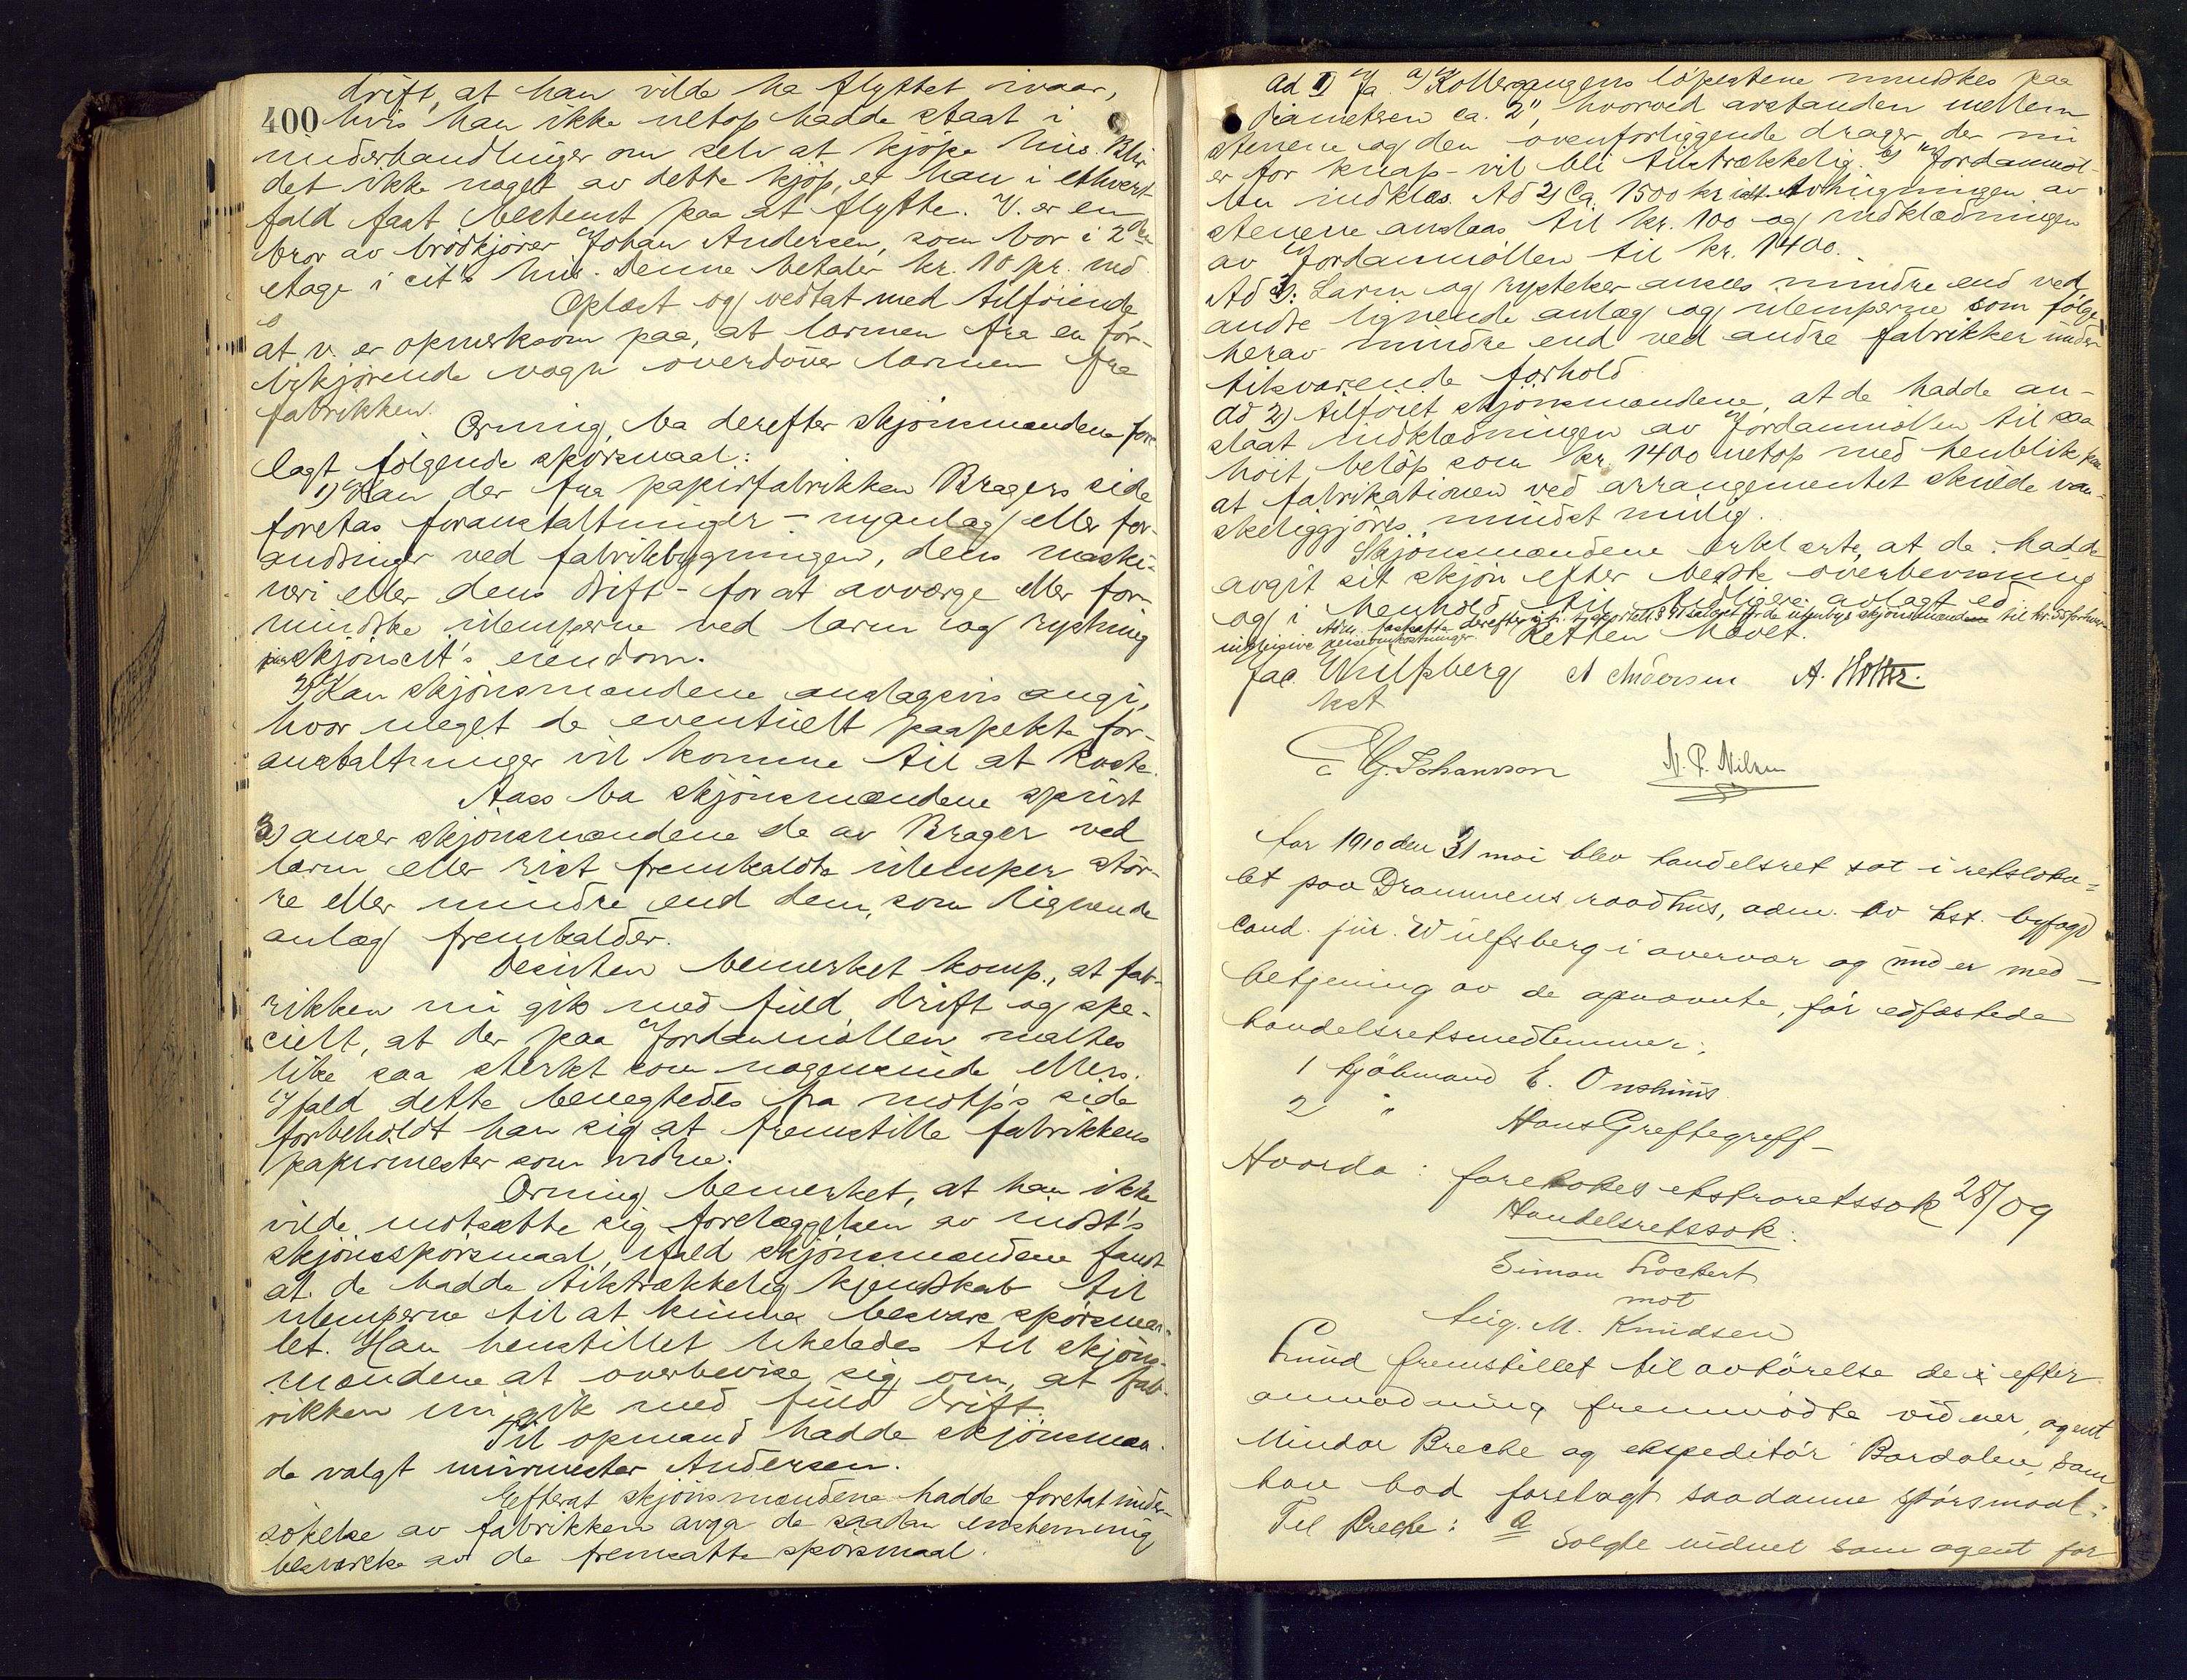 400
drift, at han vilde ha flyttet ivaar,
hvis han ikke netop hadde staat i
underhandlinger om selv at kjøpe hus. Blir
det ikke noget av dette kjøp, er han i ethvert
fald fast bestemt paa at flytte. V. er en
bror av brødkjører Johan Andersen, som bor i 2den
etage i cit's hus. Denne betaler kr. 10 pr. md.
Oplæst og vedtat med tilføiende
at v. er opmerksom paa, at larmen fra en for-
bikjørende vogn overdøver larmen fra
fabrikken.
Orning ba derefter skjønsmændene fore-
lagt følgende spørsmaal:
1) Kan der fra papirfabrikken Bragers side
foretas foranstaltninger – nyanlæg eller for-
andringer ved fabrikbygningen, dens maski-
neri eller dens drift – for at avværge eller for-
mindske ulemperne ved larm og rystning
paa skjønscit's eiendom.
2) Kan skjønsmændene anslagsvis angi,
hvor meget de eventuelt paapekte for-
anstaltninger vil komme til at koste.
Aass ba skjønsmændene spurt
3) anser skjønsmændene de av Brager ved
larm eller rist fremkaldte ulemper stør-
re eller mindre end dem, som lignende
anlæg fremkalder.
Desuten bemerket komp., at fab-
rikken nu gik med fuld drift og spe-
cielt, at der paa Jordanmøllen maltes
like saa sterkt som nogensinde ellers.
Ifald dette benegtedes fra motp's side
forbeholdt han sig at fremstille fabrikkens
papirmester som vidne.
Orning bemerket, at han ikke
vilde motsætte sig forelæggelsen av motst's
skjønsspørsmaal, ifald skjønsmændene fandt
at de hadde tilstrækkelig kjendskab til
ulemperne til at kunne besvare spørsmaa-
let. Han henstillet likeledes til skjøns-
mændene at overbevise sig om, at fab-
rikken nu gik med fuld drift.
Til opmand hadde skjønsmæn-
de valgt murmester Andersen.
Efterat skjønsmændene hadde foretat under-
søkelse av fabrikken avga de saadan enstemmig
besvarelse av de fremsatte spørsmaal.
Ad 1) Ja. a) Kollergangens løpestene mindskes paa
diametren ca. 2", hvorved avstanden mellem
stenene og den ovenforliggende drager, der nu
er for knap – vil bli tilstrækkelig. b) Jordanmøl-
len indklæs. Ad 2) Ca. 1500 kr ialt. Avhugningen av
stenene anslaas til kr. 100 og indklædningen
av Jordanmøllen til kr. 1400.
Ad 3): Larm og rystelser ansees mindre end ved
andre lignende anlæg og ulemperne som følge
herav mindre end ved andre fabrikker under
tilsvarende forhold
Ad 2) tilføiet skjønsmændene, at de hadde an-
slaat indklædningen av Jordanmøllen til saa
høit beløp som kr. 1400 netop med henblik paa
at fabrikationen ved arrangementet skulde van-
skeliggjøres mindst mulig.
Skjønsmændene erklærte, at de hadde
avgit sit skjøn efter bedste overbevisning
og i henhold til tidligere avlagt ed.
Adm. fastsatte derefter salæret for de utenbys skjønsmænd til kr.
inklusive reiseomkostninger. Retten hævet.
Jac. Wulfsberg A Andersen A. Holter.
kst
G. Johansson N. P. Nilsen
Aar 1910 den 31 mai blev handelsret sat i retsloka-
let paa Drammens raadhus, adm. av kst. byfogd
cand. jur. Wulfsberg i overvær og under med-
betjening av de opnævnte, før edfæstede
handelsretsmedlemmer:
1 kjøbmand E. Onshuus
2 " Hans Greftegreff –
Hvorda: foretokes ekstraretssak 28/09
Handelsretssak:
Simon Lockert
mot
Aug. M. Knudsen
Lund fremstillet til avhørelse de efter
anmodning fremmødte vidner, agent
Mindor Breche og ekspeditør Bardalen, som
han bad forelagt saadanne spørsmaal:
Til Breche: a Solgte vidnet som agent for